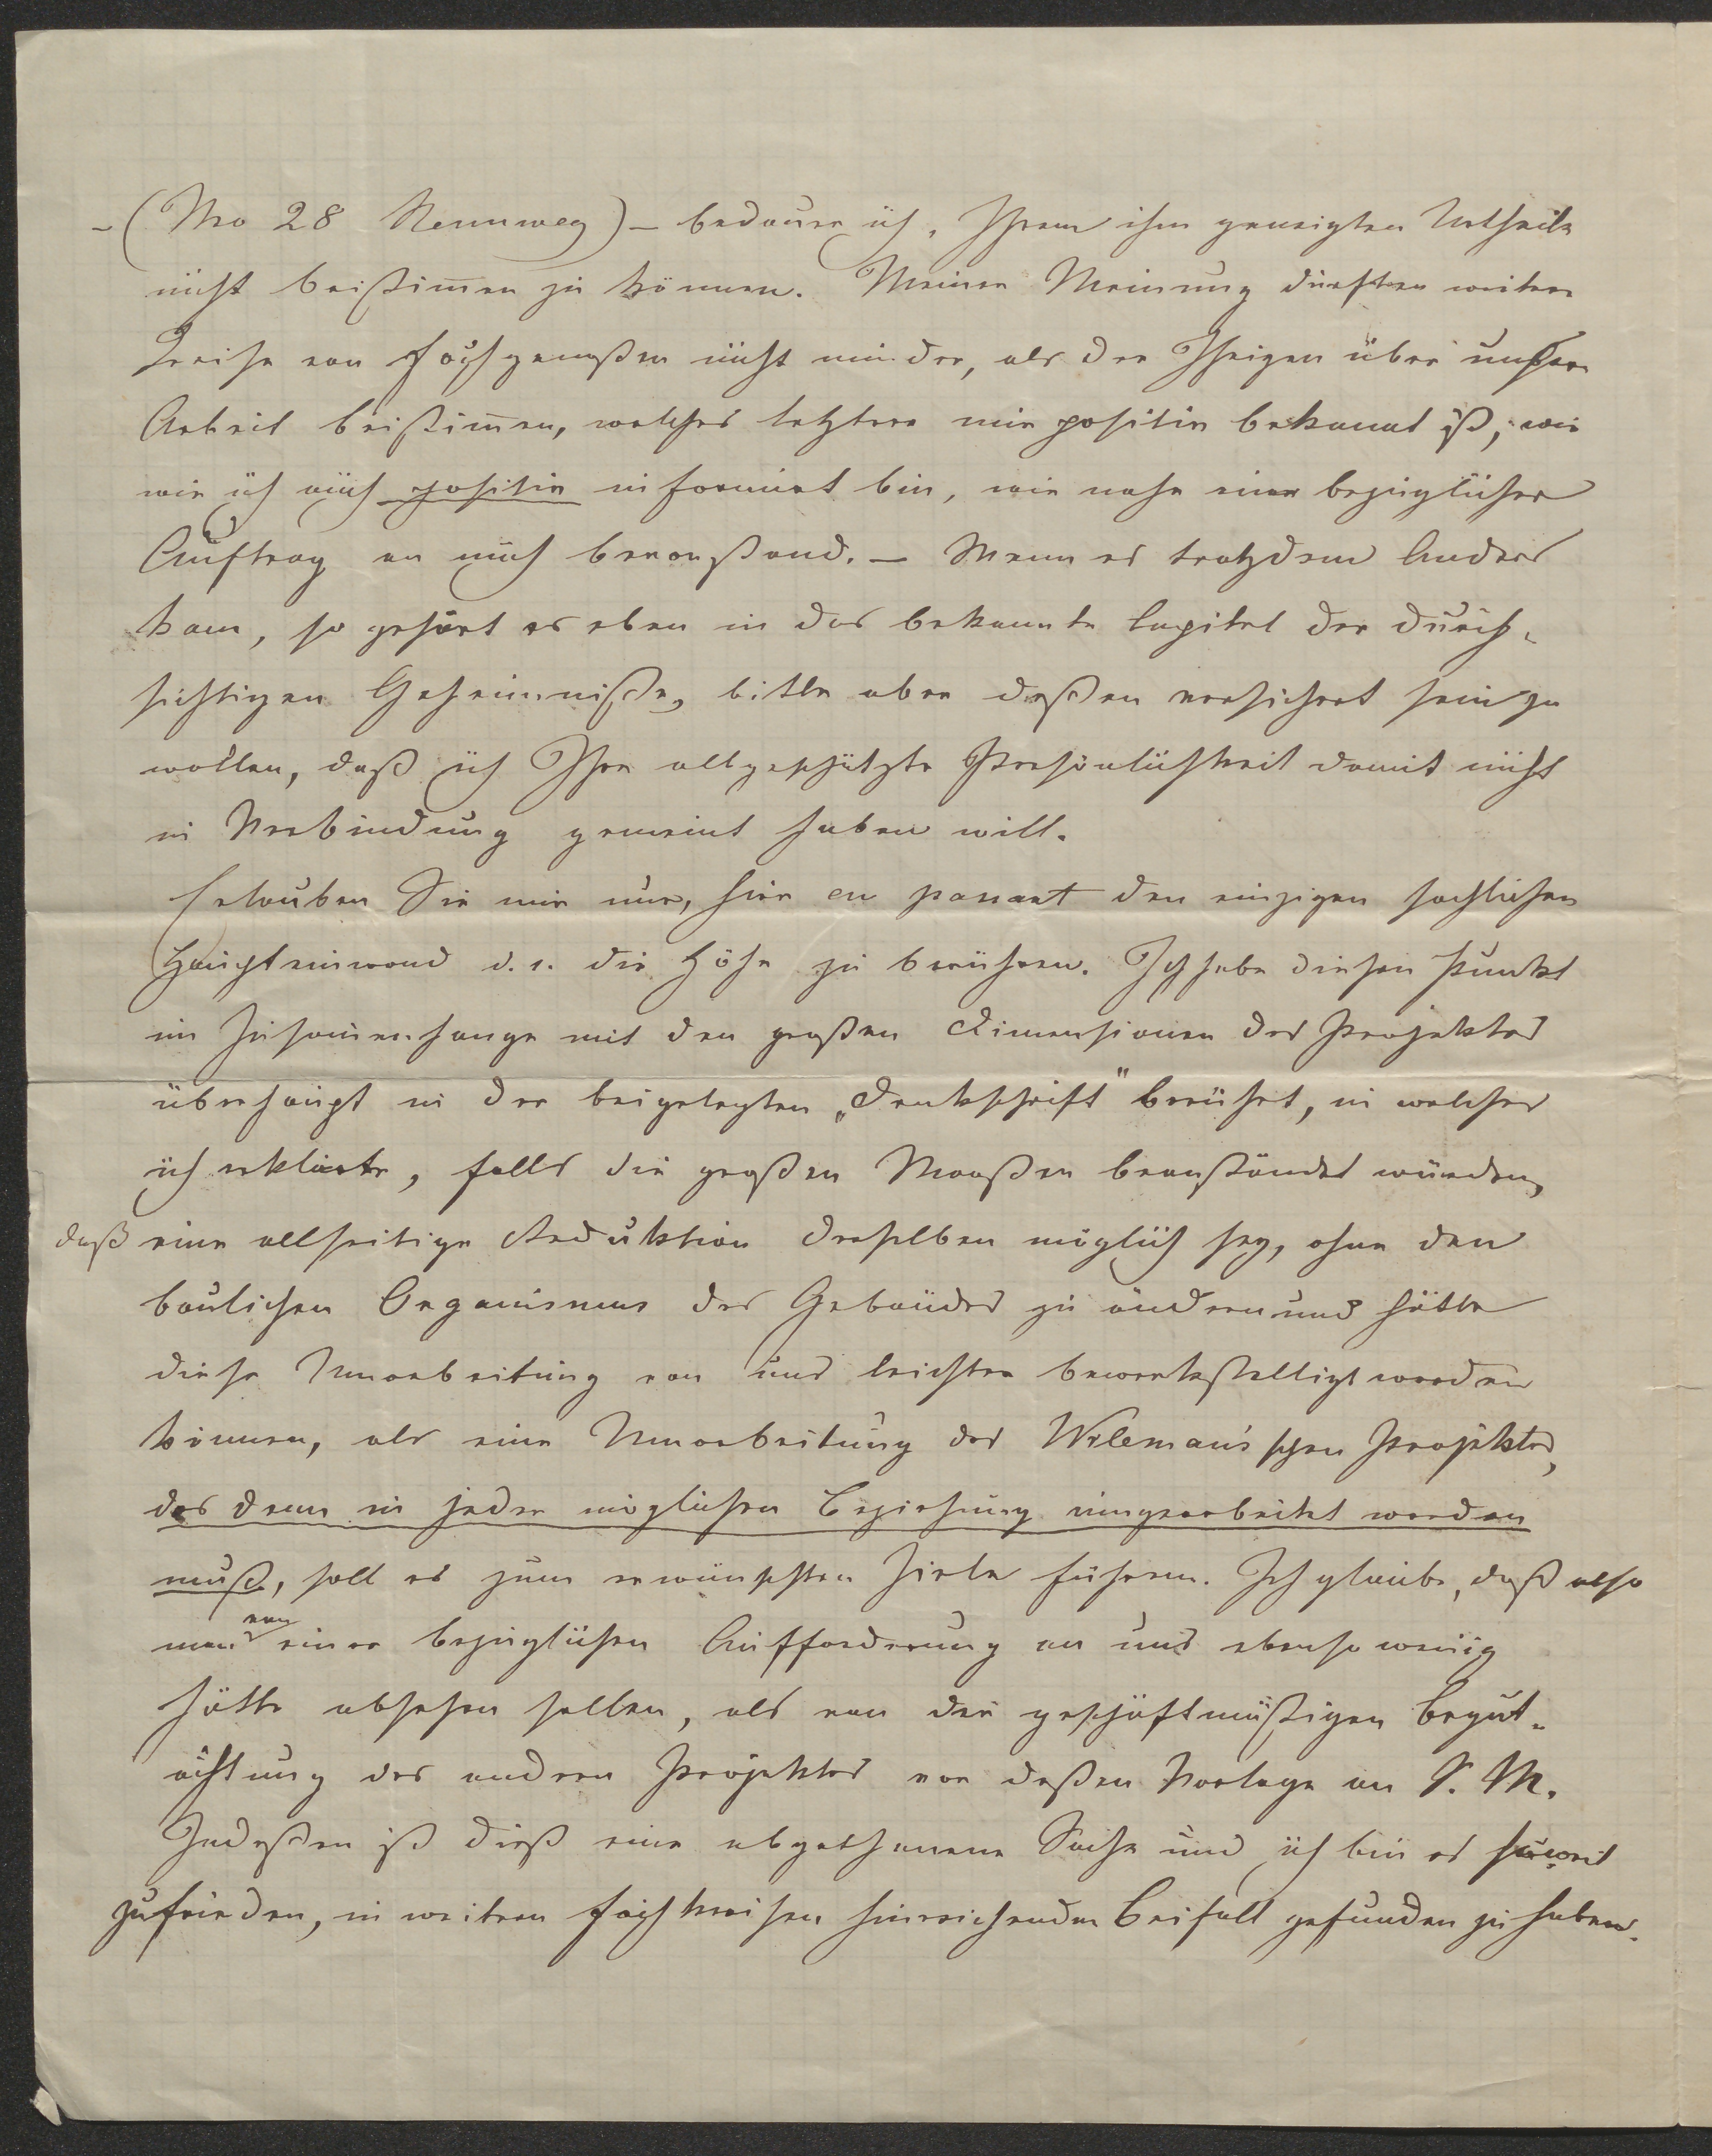 – (No 28 Rennweg) – bedaure ich, Ihrem ihm geneigten Urtheile
nicht beistim̄en zu können. Meiner Meinung dürften weitere
Kreise von Fachgenoßen nicht minder, als der Ihrigen über unsere
Arbeit beistim̄en, welches letztere mir positiv bekannt ist, wie
wie ich auch positiv informirt bin, wie nahe einer bezüglicher
Auftrag an mich bevorstand. – Wenn es trotzdem Anders
kam, so gehört es eben in das bekannte Capitel der durch-
sichtigen Geheimniße, bitte aber deßen versichert sein zu
wollen, daß ich Ihre allgeschätzte Persönlichkeit damit nicht
in Verbindung gemeint haben will.
Erlauben Sie mir nur, hier en passant den einzigen sachlichen
Haupteinwand d. i. die Höhe zu berühren. Ich habe diesen Punkt
im Zusam̄enhange mit den großen Dimensionen des Projektes
überhaupt in der beigelegten „Denkschrift" berührt, in welcher
ich erklärte, falls die großen Maaßen beanständet würden,
daß eine allseitige Reduktion derselben möglich sey, ohne den
baulichen Organismus des Gebäudes zu ändern und hätte
diese Umarbeitung von uns leichter bewerkstelligt werden
können, als eine Umarbeitung des Wilemans'schen Projektes,
das denn in jeder möglichen Beziehung umgearbeitet werden
muß, soll es zum erwünschten Ziele führen. Ich glaube, daß also
man von einer bezüglichen Aufforderung an uns ebenso wenig
hätte absehen sollen, als von der geschäftmäßigen Begut-
achtung des anderen Projektes vor deßen Vorlage an S. M.
Indeßen ist dieß eine abgethanene Sache und ich bin es soweit
zufrieden, in weiteren Fachkreisen hinreichenden Beifall gefunden zu haben.